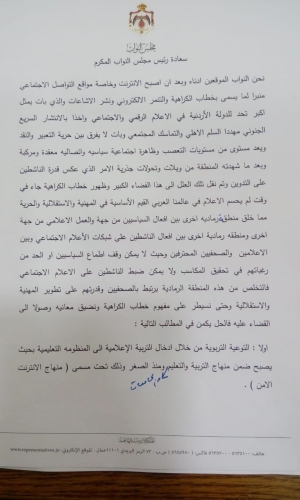 مجلس النواب
سعادة رئيس مجلس النواب المكرم
نحن النواب الموقعين ادناه وبعد ان أصبح الانترنت وخاصة مواقع التواصل الاجتماعي
منبرا لما يسمى بخطاب الكراهية والتنمر الالكتروني ونشر الاشاعات والذي بات يمثل
اكبر تحد للدولة الأردنية في الاعلام الرقمي والاجتماعي واخذا بالانتشار السريع
الجنوني مهددا السلم الاهلي والتماسك المجتمعي وبات لا يفرق بين حرية التعبير والنقد
ويعد مستوى من مستويات التعصب وظاهرة اجتماعية سياسيه واتصاليه معقدة ومركبة
وبعد ما شهدته المنطقة من ويلات وتحولات جذرية الامر الذي عكس قدرة الناشطين
على التدوين وتم نقل تلك العلل الى هذا الفضاء الكبير وظهور خطاب الكراهية جاء في
وقت لم يحسم الاعلام في عالمنا العربي القيم الأساسية في المهنية والاستقلالية والحرية
مما خلق منطقة رماديه اخرى بين افعال السياسيين من جهة والعمل الاعلامي من جهة
اخرى ومنطقه رمادية اخرى بين افعال الناشطين على شبكات الأعلام الاجتماعي وبين
الاعلاميين والصحفيين المحترفين وحيث لا يمكن وقف اطماع السياسيين او الحد من
رغباتهم في تحقيق المكاسب ولا يمكن ضبط الناشطين على الاعلام الاجتماعي
فالتخلص من هذه المنطقة الرمادية يرتبط بالصحفيين وقدرتهم على تطوير المهنية
والاستقلالية وحتى نسيطر على مفهوم خطاب الكراهية ونضيق معانيه وصولا الى
القضاء عليه فالحل يكمن في المطالب التالية :
اولا : التوعية التربوية من خلال ادخال التربية الإعلامية الى المنظومه التعليمية بحيث
يصبح ضمن منهاج التربية والتعليم ومنذ الصغر وذلك تحت مسمى ( منهاج الانترنت
الامن ) .